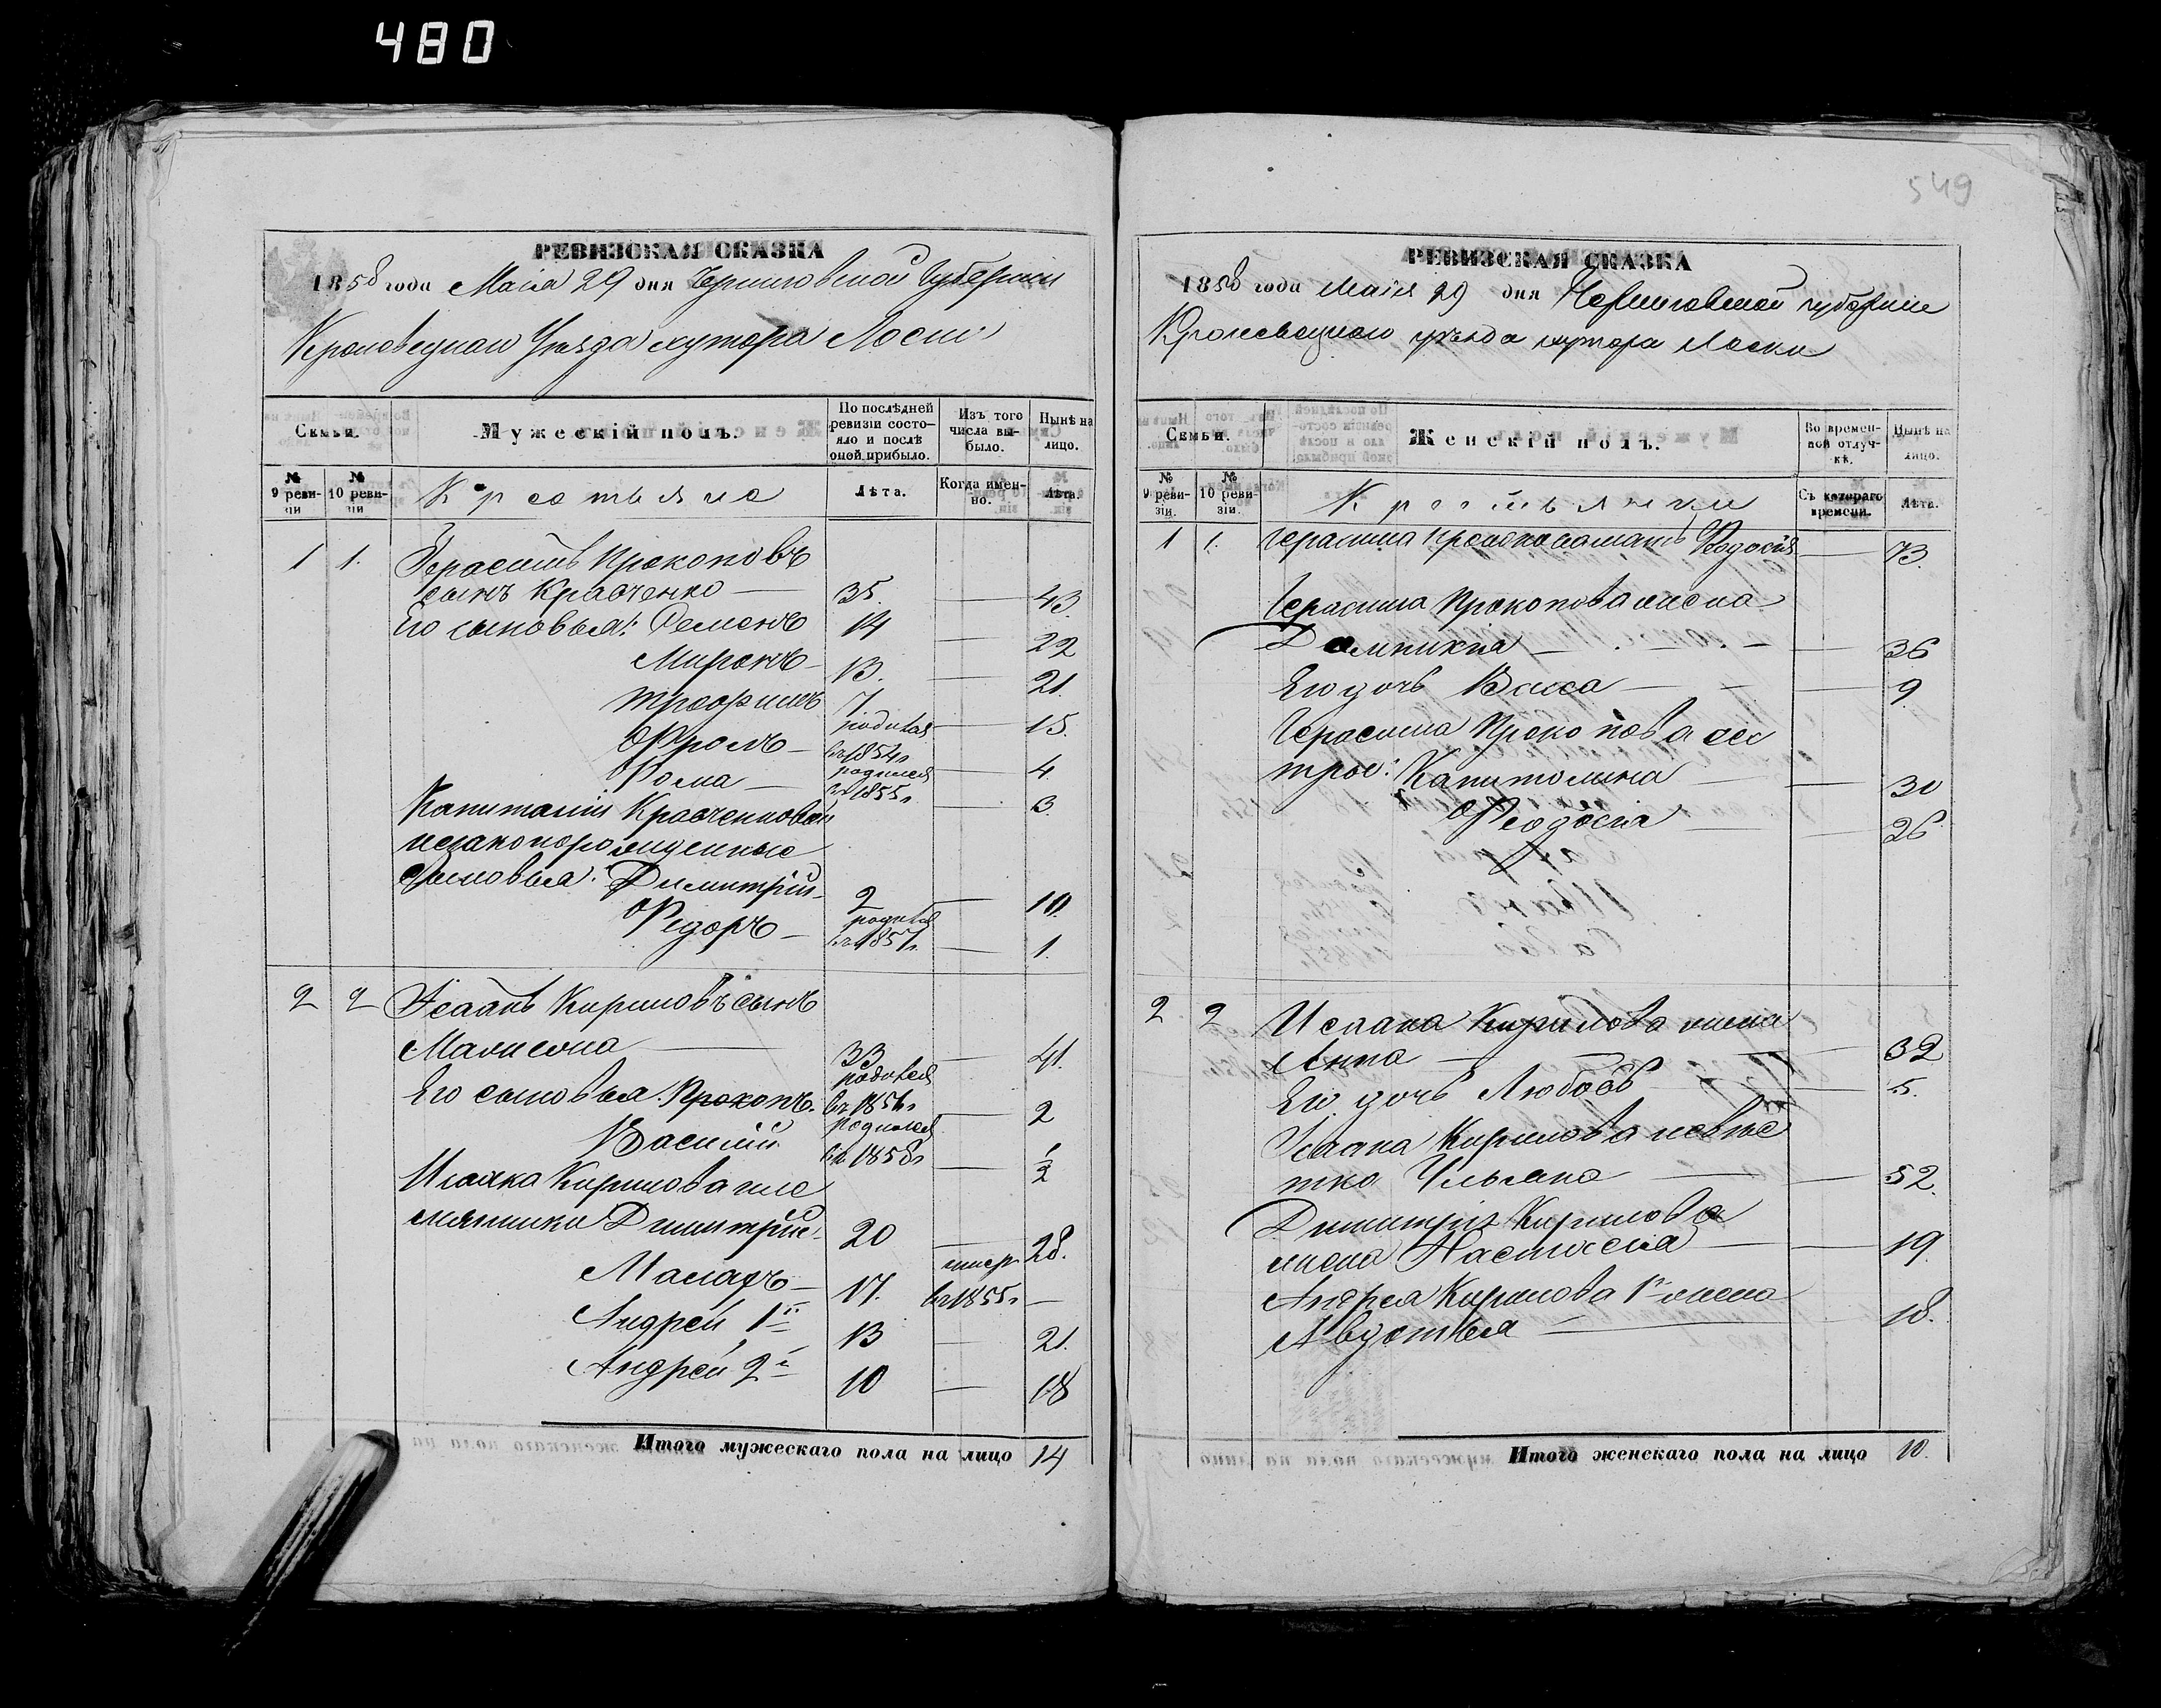 480
549
РЕВИЗСКАЯ СКАЗКА
1858 года Маия 29 дня Черниговской Губернии
Кролевецкаго Уезда хутора Лоски
Семьи.
Мужескій полъ.
По послѣдней ревизіи состояло и послѣ оной прибыло.
Изъ того числа выбыло.
Нынѣ на лицо.
№ 9 ревизіи
№ 10 ревизіи
Крестьяне
Лѣта.
Когда именно.
Лѣта.
1 1. Герасимъ Прокоповъ
сынъ Кравченко — 35. — 43.
Его сыновья: Семенъ 14 — 22
Миронъ — 13. — 21.
Трофимъ 7 — 15.
Фролъ — родился въ 1854г — 4.
Фома — родился въ 1855г. — 3.
Капитолины Кравченковой
незаконорожденные
Сыновья: Димитрій — 2 — 10.
Федоръ — родился въ 1857г. — 1.
2 2 Исаакъ Кириловъ сынъ
33 — 41.
Его сыновья. Прокопъ. родился въ 1856г — 2
Василій родился въ 1858г — 1/2
Исаака Кирилова пле
мянники Димитрій. 20 — 28.
Макаръ — 17. умер въ 1855г —
Андрей 1й 13 — 21.
Андрей 2й 10 — 18
Итого мужескаго пола на лицо 14
РЕВИЗСКАЯ СКАЗКА
1858 года Маія 29 дня Черниговской губерніи
Кролевецкаго уѣзда хутора Лоски
Семьи.
Женскій полъ.
Во временной отлучкѣ.
Нынѣ на лицо.
№ 9 ревизіи.
№ 10 ревизіи.
Крестьянки
Съ котораго времени.
Лѣта.
1 1. Герасима Прокопова мать Феодосія — 73.
Герасима Прокопова жена
Домникія — — 36
Его дочь Васса — — 9
Герасима Прокопова сес
тры: Капитолина — 30
Феодосія — — 26
2 2 Исаака Кирилова жена
Анна — — 32
Его дочь Любовь — 5.
Исаака Кирилова невѣс
тка Ульяна — — 52.
Димитрія Кирилова
жена Настасья — — 19.
Андрея Кирилова 1го жена
Авдотья — 18.
Итого женскаго пола на лицо 10.